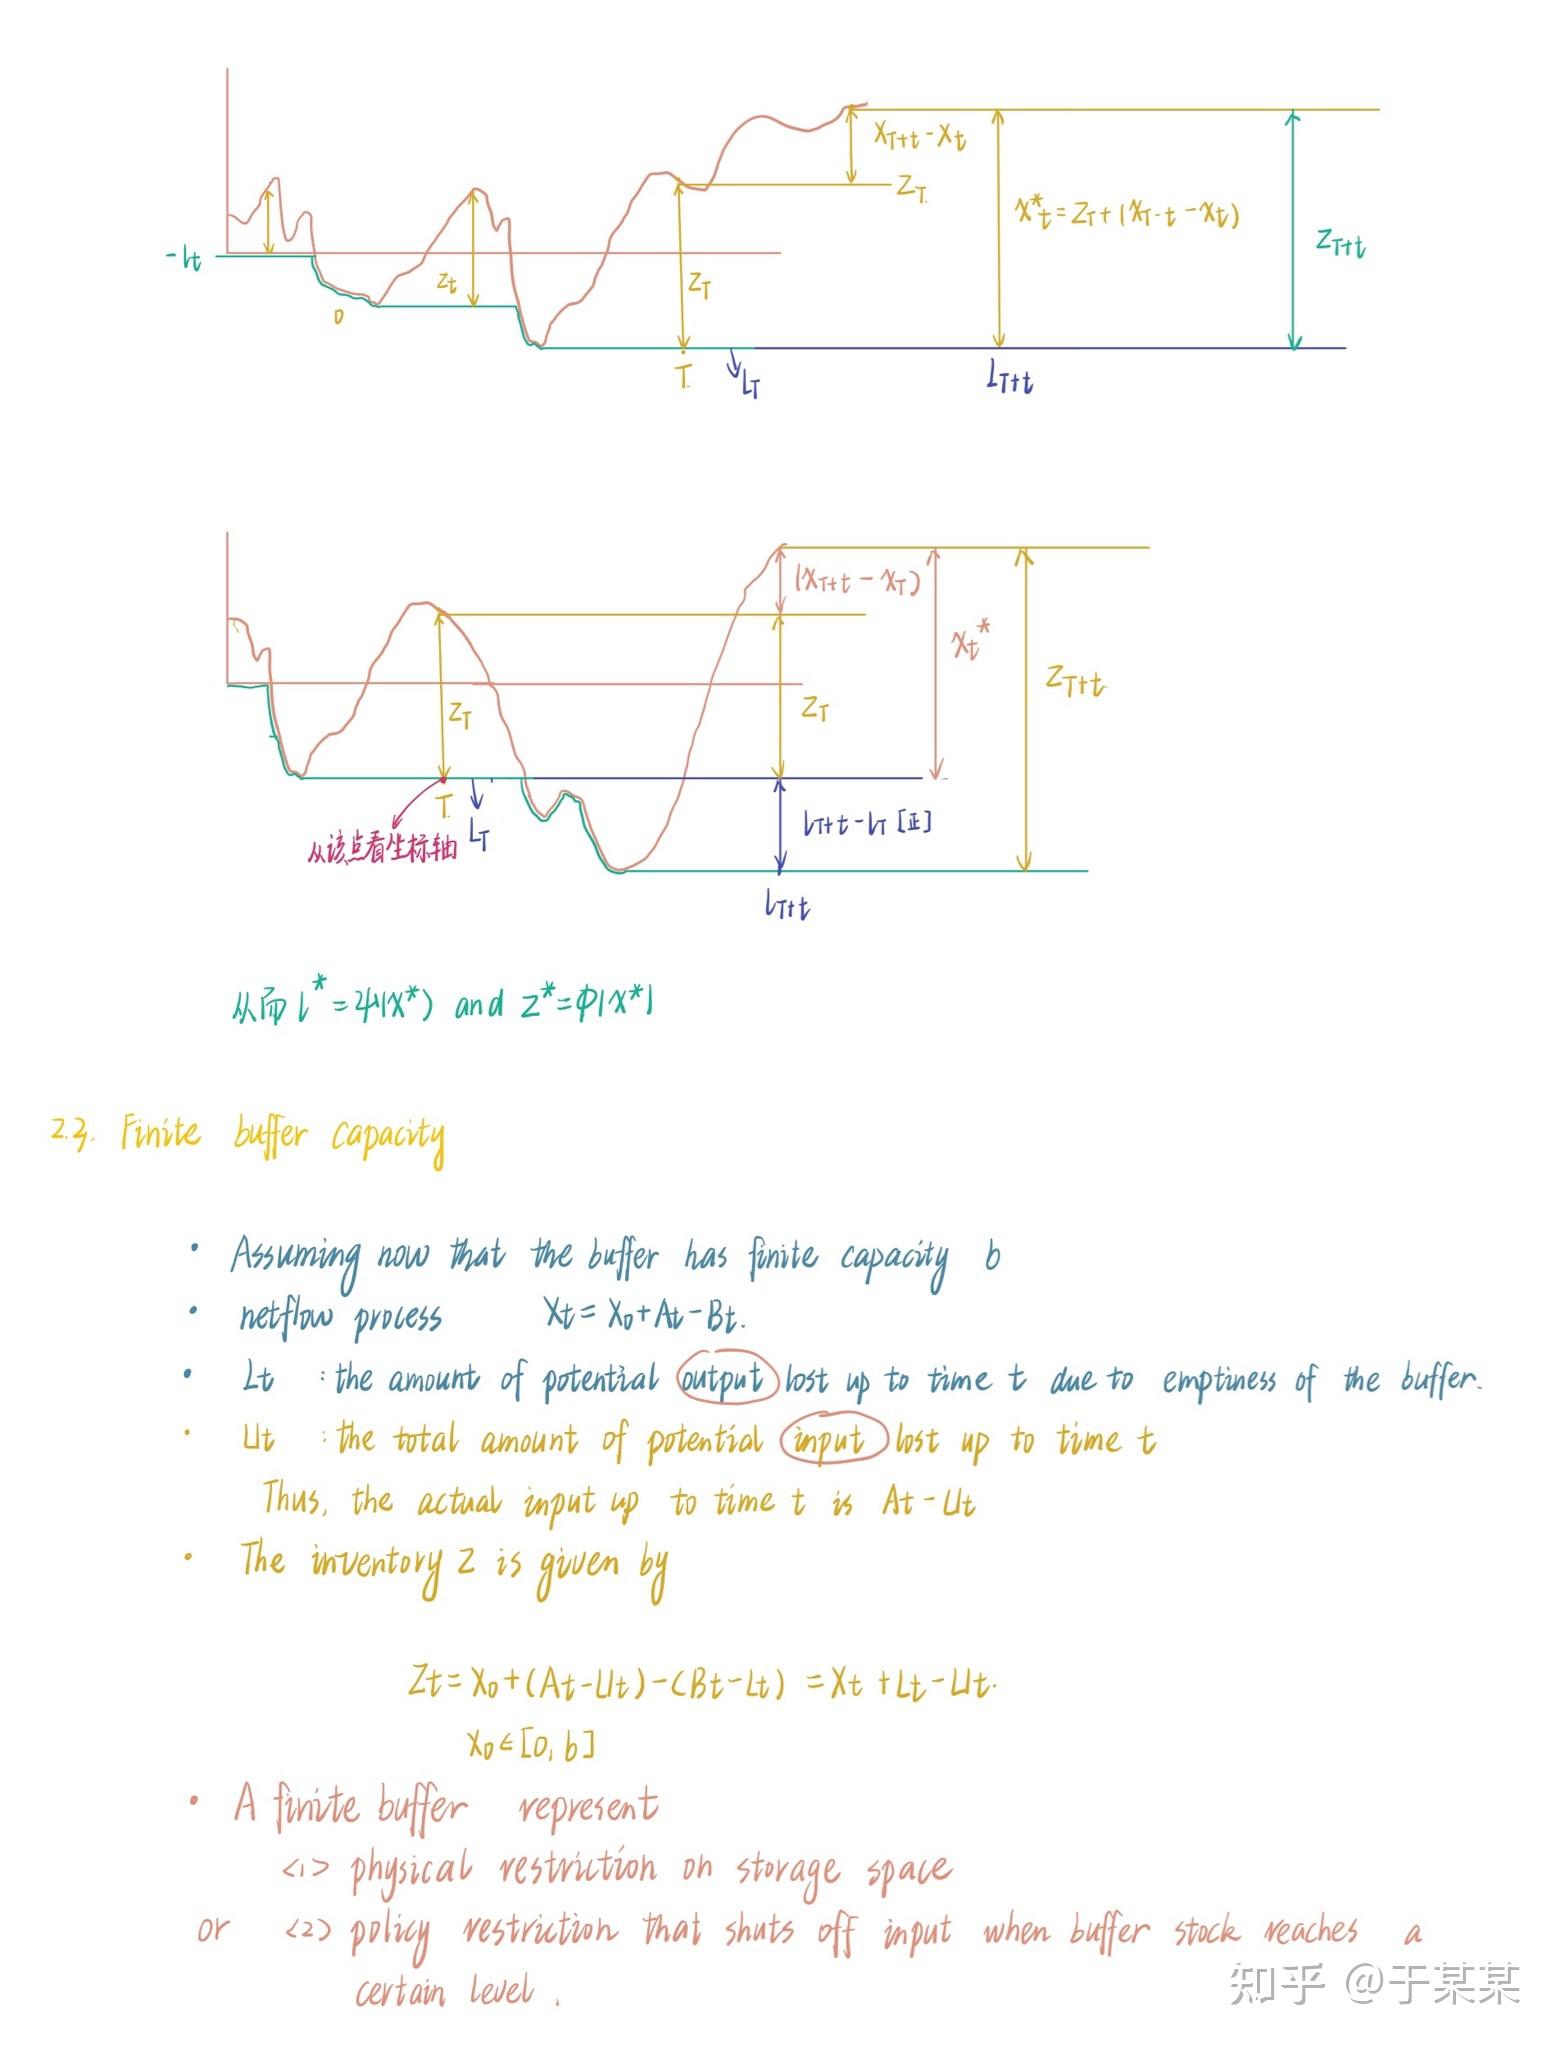 X_{T+t} - X_t
Z_T
X*_t = Z_T + (X_{T-t} - X_t)
Z_{T+t}
-L_t
Z_t
Z_T
0
T
L_T
L_{T+t}
(X_{T+t} - X_T)
X_t*
Z_{T+t}
Z_T
Z_T
T
L_T
L_{T+t} - L_T [正]
从该点看坐标轴
L_{T+t}
从而 L* = ψ(X*) and Z* = φ(X*)
2.3. Finite buffer capacity
• Assuming now that the buffer has finite capacity b
• netflow process X_t = X_0 + A_t - B_t.
• L_t : the amount of potential output lost up to time t due to emptiness of the buffer.
• U_t : the total amount of potential input lost up to time t
Thus, the actual input up to time t is A_t - U_t
• The inventory Z is given by
Z_t = X_0 + (A_t - U_t) - (B_t - L_t) = X_t + L_t - U_t.
X_0 ∈ [0, b]
• A finite buffer represent
<1> physical restriction on storage space
or <2> policy restriction that shuts off input when buffer stock reaches a
certain level.
知乎 @于某某